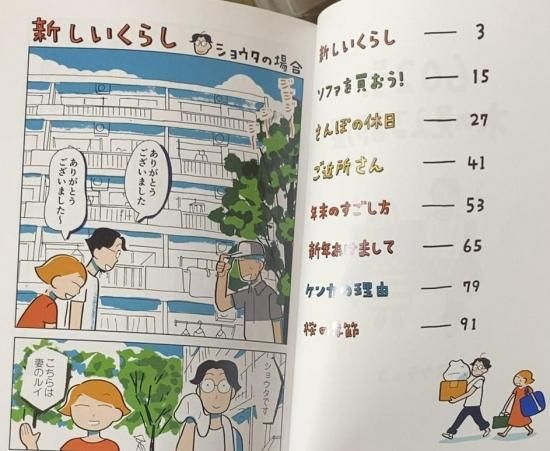 新しいくらし
ショウタの場合
ありがとう
ございました
ありがとう
ございました〜
ショウタです
こちらは
妻のルイ
新しいくらし — 3
ソファを買おう! — 15
さんぽの休日 — 27
ご近所さん — 41
年末のすごし方 — 53
新年あけまして — 65
ケンカの理由 — 79
桜の季節 — 91